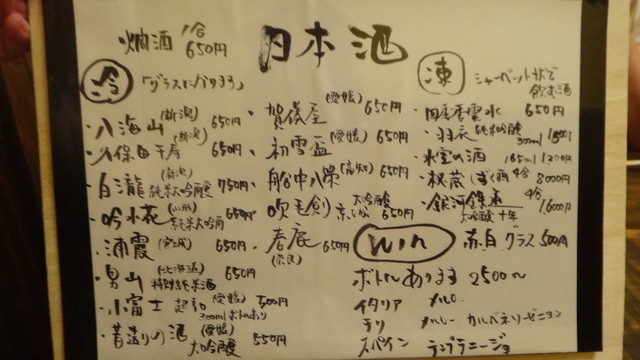 日本酒
燗酒 1合 650円
冷 「グラスになります」
・八海山 (新潟) 650円
・久保田千寿 (新潟) 650円
・白瀧 (新潟) 純米大吟醸 750円
・吟水花 (山形) 純米大吟醸 650円
・浦霞 (宮城) 650円
・男山 (北海道) 特別純米酒 650円
・小富士 (愛媛) 300mlボトル 500円
・昔造りの酒 (愛媛) 大吟醸 550円
・賀儀屋 (愛媛) 650円
・初雪盃 (愛媛) 650円
・船中八策 (高知) 650円
・吹毛剣 大吟醸 650円
・春鹿 (奈良) 650円
凍 シャーベット状で飲む酒
650円
・羽衣 純米吟醸 300ml
・氷室の酒 1200円
・秘蔵 4合 8000円
・銀河鉄道 4合 大吟醸 十年
win 赤白 グラス 500円
ボトルあります 2500〜
イタリア メルロ
チリ メルロー カルベネソーゼニヨン
スペイン テンプラニージョ